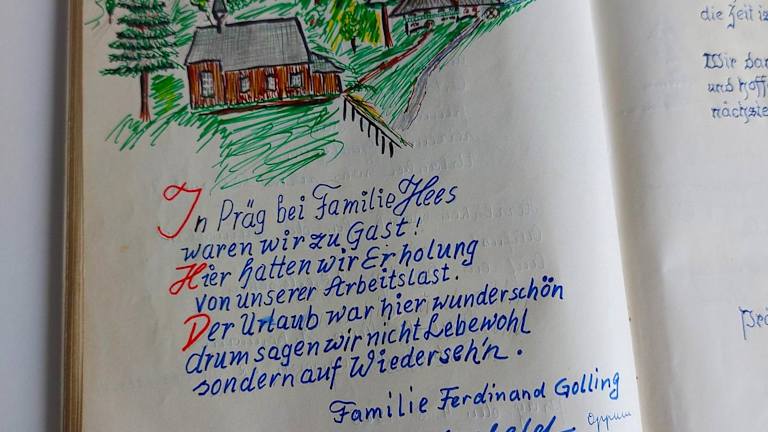 In Präg bei Familie Hees
waren wir zu Gast!
Hier hatten wir Erholung
von unserer Arbeitslast.
Der Urlaub war hier wunderschön
drum sagen wir nicht Lebewohl
sondern auf Wiederseh'n.
Familie Ferdinand Golling
die Zeit
Wir
und hoff
nächste